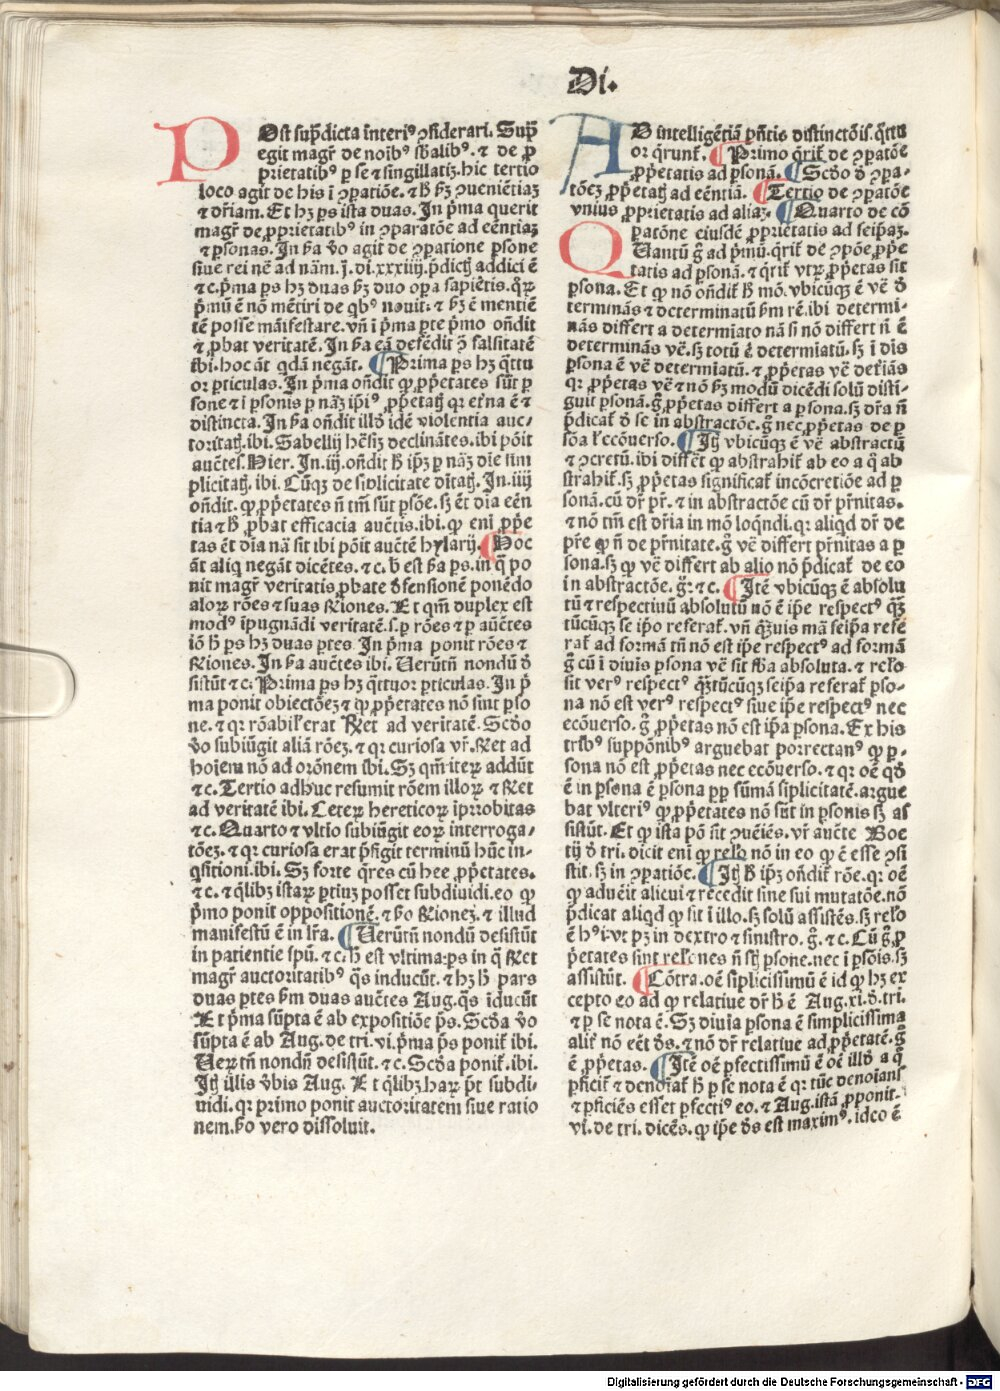 Di.
POst sup̄dicta interiꝰ ꝯsiderari. Sup̄
egit magr̄ de noībꝰ sb̄alibꝰ. ⁊ de ꝓ
prietatibꝰ ꝑ se ⁊ singillatiꝫ. hic tertio
loco agit de his ī ꝯꝑatiōe. ⁊ h̄ ẜꝫ ꝯueniētiaꝫ
⁊ dr̄iam. Et hꝫ ꝑs ista duas. In p̄ma querit
magr̄ de ꝓprietatibꝰ in ꝯparatōe ad eēntiaꝫ
⁊ ꝑsonas. In ẜa v̄o agit de ꝯpatione ꝑsone
siue rei nē ad nām. j. di. xxxiiij. p̄dictꝭ addici ē
⁊ c. p̄ma ꝑs hꝫ duas ẜꝫ duo oꝑa sapiētis. qꝝ
p̄mū ē nō mētiri de qbꝰ nouit. ⁊ ẜꝫ ē mentiē
tē posse māifestare. vn̄ ī p̄ma ꝑte p̄mo on̄dit
⁊ ꝓbat veritatē. In ẜa eā defēdit ꝯ̄ falsitatē
ibi. hoc āt qdā negāt. ¶ Prima ꝑs hꝫ q̄ttu
or ꝑticulas. In p̄ma on̄dit ꝙ ꝓp̄etates sūt ꝑ
sone ⁊ ī ꝑsonis ꝑ nāꝫ ip̄iꝰ ꝓp̄etatꝭ qꝛ et̄na ē ⁊
distincta. In ẜa on̄dit illd̄ idē violentia auc-
toritatꝭ. ibi. Sabellij hēsiꝫ declinātes. ibi pōit
auc̄tes. Hier. In. iij. on̄dit h̄ ip̄ꝫ ꝑ nāꝫ dīe sim
plicitatꝭ. ibi. Cūqꝫ de sīplicitate dītatꝭ. In. iiij
on̄dit. ꝙ ꝓp̄etates n̄ tm̄ sūt ꝑsōe. sꝫ ēt dīa eēn
tia ⁊ h̄ ꝓbat efficacia auc̄tis. ibi. ꝙ eni ꝓp̄e
tas ēt dīa nā sit ibi pōit auc̄tē hylarij. ¶ Hoc
āt aliq negāt dicētes. ⁊ c. h̄ est ẜa ꝑs. in q̄ po
nit magr̄ veritatis ꝓbate d̄fensionē ponēdo
aloꝝ rōes ⁊ suas Rōnes. Et qm̄ duplex est
modꝰ īpugnādi veritatē. s. ꝑ rōes ⁊ ꝑ auc̄tes
iō h̄ ꝑs hꝫ duas ꝑtes. In p̄ma ponit rōes ⁊
Rōnes. In ẜa auc̄tes ibi. Uerūtn̄ nondū d̄
sistūt ⁊ c. Prima ꝑs hꝫ q̄ttuor ꝑticulas. In p̄
ma ponit obiectōeꝫ ⁊ ꝙ ꝓp̄etates nō sint ꝑso
ne. ⁊ qꝛ rōabilꝭ erat Rn̄et ad veritatē. Scd̄o
v̄o subiūgit aliā rōeꝫ. ⁊ qꝛ curiosa vr̄. Rn̄et ad
hoīem nō ad orōnem ibi. Sꝫ qm̄ iteꝝ addūt
⁊ c. Tertio adhuc resumit rōem illoꝝ ⁊ Rn̄et
ad veritatē ibi. Ceteꝝ hereticoꝝ īprobitas
⁊ c. Quarto ⁊ vltīo subiūgit eoꝝ interroga-
tōeꝫ. ⁊ qꝛ curiosa erat p̄figit terminū hūc in-
qsitioni. ibi. Sꝫ forte q̄res cū hee ꝓp̄etates.
⁊ c. ⁊ q̄libꝫ istaꝝ ꝑtiuꝫ posset subdiuidi. eo ꝙ
p̄mo ponit oppositionē. ⁊ ẜo Rōneꝫ. ⁊ illud
manifestū ē in lr̄a. ¶ Uerūtn̄ nondū desistūt
in patientie spū. ⁊ c. h̄ est vltima ꝑs in q̄ Rn̄et
magr̄ auctoritatibꝰ q̄s inducūt. ⁊ hꝫ h̄ pars
duas ꝑtes ẜm duas auc̄tes Aug. q̄s iducūt
Et p̄ma sūpta ē ab expositiōe p̄s. Scd̄a v̄o
sūpta ē ab Aug. de tri. vi. p̄ma ꝑs ponit̄ ibi.
Ueꝝtn̄ nondū desistūt. ⁊ c. Scd̄a ponit̄. ibi.
Itꝭ illis v̄bis Aug. Et q̄libꝫ haꝝ p̄t subdi-
uidi. qꝛ primo ponit auctoritatem siue ratio
nem. ẜo vero dissoluit.
AD intelligētiā pn̄tis distinctōis. q̄ttu
or q̄runt̄. ¶ Primo q̄rit̄ de ꝯpatōe
ꝓp̄etatis ad ꝑsonā. ¶ Scd̄o d̄ ꝯpa-
tōeꝫ ꝓp̄etatꝭ ad eēntiā. ¶ Tertio de ꝯpatōe
vnius ꝓprietatis ad aliaꝫ. ¶ Quarto de cō
patōne eiusdē ꝓprietatis ad seipaꝫ.
QUantū g̊ ad p̄mū. q̄rit̄ de ꝯpōe ꝓp̄e
tatis ad ꝑsonā. ⁊ q̄rit̄ vtꝝ ꝓp̄etas sit
ꝑsona. Et ꝙ nō on̄dit̄ h̄ mō. vbicūqꝫ ē vē d̄
terminās ⁊ determinatū ẜm rē. ibi determi-
nās differt a determiato nā si nō differt n̄ ē
determinās vē. sꝫ totū ē determiatū. sꝫ ī dīs
ꝑsona ē vē determiatū. ⁊ ꝓp̄etas vē det̄iās
qꝛ ꝓp̄etas vē ⁊ nō ẜꝫ modū dicēdi solū disti-
guit ꝑsonā. g̊ ꝓp̄etas differt a ꝑsona. sꝫ dr̄a n̄
p̄dicat̄ d̄ se in abstractōe. g̊ nec ꝓp̄etas de ꝑ
sōa l̄ ecōuerso. ¶ Itꝭ vbicūqꝫ ē vē abstractū
⁊ ꝯcretū. ibi differt ꝙ abstrahit̄ ab eo a q̄ ab
strahit̄. sꝫ ꝓp̄etas significat̄ incōcretiōe ad ꝑ
sonā. cū dr̄ pr̄. ⁊ in abstractōe cū dr̄ pr̄nitas.
⁊ nō tm̄ est dr̄ia in mō loqndi. qꝛ aliqd dr̄ de
pr̄e ꝙ n̄ de pr̄nitate. g̊ vē differt pr̄nitas a ꝑ
sona. sꝫ ꝙ vē differt ab alio nō p̄dicat̄ de eo
in abstractōe. g̊. ⁊ c. ¶ Itē vbicūqꝫ ē absolu
tū ⁊ respectiuū absolutū nō ē ip̄e respectꝰ qꝫ
tūcūqꝫ se ip̄o referat̄. vn̄ qꝫuis mā seip̄a refe
rat̄ ad formā tn̄ nō est ip̄e respectꝰ ad formā
g̊ cū ī diuīs ꝑsona vē sit ẜba absoluta. ⁊ relō
sit verꝰ respectꝰ qꝫtūcūqꝫ seip̄a referat̄ ꝑso-
na nō est verꝰ respectꝰ siue ip̄e respectꝰ nec
ecōuerso. g̊ ꝓp̄etas nō est ip̄a ꝑsona. Ex his
tribꝰ suppōnibꝰ arguebat porrectanꝰ ꝙ ꝑ-
sona nō est ꝓp̄etas nec ecōuerso. ⁊ qꝛ oē qd̄
ē in ꝑsona ē ꝑsona ꝓp̄ sūmā sīplicitatē. argue
bat vlteriꝰ ꝙ ꝓp̄etates nō sūt in ꝑsonis sꝫ as
sistūt. Et ꝙ ista pō sit ꝯueiēs. vr̄ auc̄te Boe
tij d̄ tri. dicit eni ꝙ relō nō in eo ꝙ ē esse ꝯsi
stit. sꝫ in ꝯpatiōe. ¶ Itꝭ h̄ ip̄ꝫ on̄dit̄ rōe. qꝛ oē
ꝙ aduēit alicui ⁊ recedit sine sui mutatōe. nō
p̄dicat aliqd ꝙ sit ī illo. sꝫ solū assistēs. sꝫ relō
ē hꝰi. vt pꝫ in dextro ⁊ sinistro. g̊. ⁊ c. Cū g̊ ꝓ
p̄etates sint relōes n̄ sūt ꝑsone. nec ī ꝑsōis. sꝫ
assistūt. ¶ Cōtra. oē sīplicissimū ē id ꝙ hꝫ ex
cepto eo ad ꝙ relatiue dr̄ h̄ ē Aug. xi. d̄. tri.
⁊ ꝑ se nota ē. Sꝫ diuīa ꝑsona ē simplicissima
alit̄ nō eēt dꝰs. ⁊ nō dr̄ relatiue ad ꝓp̄etatē. g̊
ē ꝓp̄etas. ¶ Itē oē ꝑfectissimū ē oē illd̄ a q̄
ꝑficit̄ ⁊ denoīat̄ h̄ ꝑ se nota ē qꝛ tūc denoians
⁊ ꝑficiēs esset ꝑfectiꝰ eo. ⁊ Aug. istā ꝓponit.
vi. de tri. dicēs. ꝙ ip̄e dꝰs est maximꝰ. ideo ē
Digitalisierung gefördert durch die Deutsche Forschungsgemeinschaft - DFG